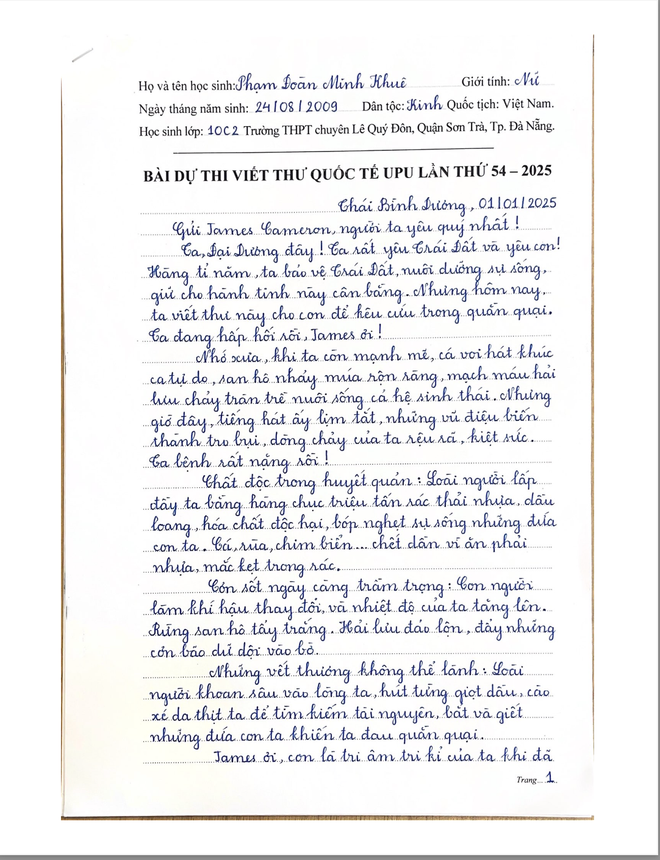 Họ và tên học sinh: Phạm Đoàn Minh Khuê Giới tính: Nữ
Ngày tháng năm sinh: 24/08/2009 Dân tộc: Kinh Quốc tịch: Việt Nam.
Học sinh lớp: 10C2 Trường THPT chuyên Lê Quý Đôn, Quận Sơn Trà, Tp. Đà Nẵng.
BÀI DỰ THI VIẾT THƯ QUỐC TẾ UPU LẦN THỨ 54 – 2025
Thái Bình Dương, 01/01/2025
Gửi James Cameron, người ta yêu quý nhất!
Ta, Đại Dương đây! Ta rất yêu Trái Đất và yêu con!
Hàng tỉ năm, ta bảo vệ Trái Đất, nuôi dưỡng sự sống,
giữ cho hành tinh này cân bằng. Nhưng hôm nay,
ta viết thư này cho con để kêu cứu trong quằn quại.
Ta đang hấp hối rồi, James ơi!
Nhớ xưa, khi ta còn mạnh mẽ, cá voi hát khúc
ca tự do, san hô nhảy múa rộn ràng, mạch máu hải
lưu chảy tràn trề nuôi sống cả hệ sinh thái. Nhưng
giờ đây, tiếng hát ấy lịm tắt, những vũ điệu biến
thành tro bụi, dòng chảy của ta rệu rã, kiệt sức.
Ta bệnh rất nặng rồi!
Chất độc trong huyết quản: Loài người lấp
đầy ta bằng hàng chục triệu tấn rác thải nhựa, dầu
loang, hóa chất độc hại, bóp nghẹt sự sống những đứa
con ta. Cá, rùa, chim biển... chết dần vì ăn phải
nhựa, mắc kẹt trong rác.
Cơn sốt ngày càng trầm trọng: Con người
làm khí hậu thay đổi, và nhiệt độ của ta tăng lên.
Rừng san hô tẩy trắng. Hải lưu đảo lộn, đẩy những
cơn bão dữ dội vào bờ.
Những vết thương không thể lành: Loài
người khoan sâu vào lòng ta, hút từng giọt dầu, cào
xé da thịt ta để tìm kiếm tài nguyên, bắt và giết
những đứa con ta khiến ta đau quằn quại.
James ơi, con là tri âm tri kỉ của ta khi đã
Trang 1